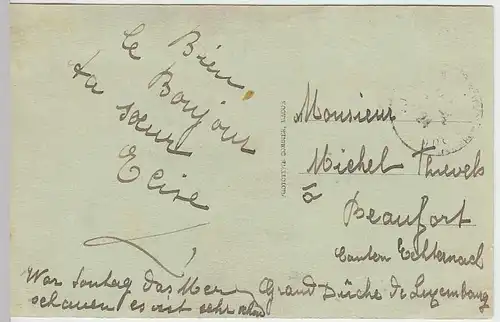 Le Bien
Bonjour
ta sœur
Elise
War Sontag das Meer
schauen es ist sehr schön
Monsieur
Michel Thevels
Beaufort
Canton Echternach
Grand Düche de Luxembourg